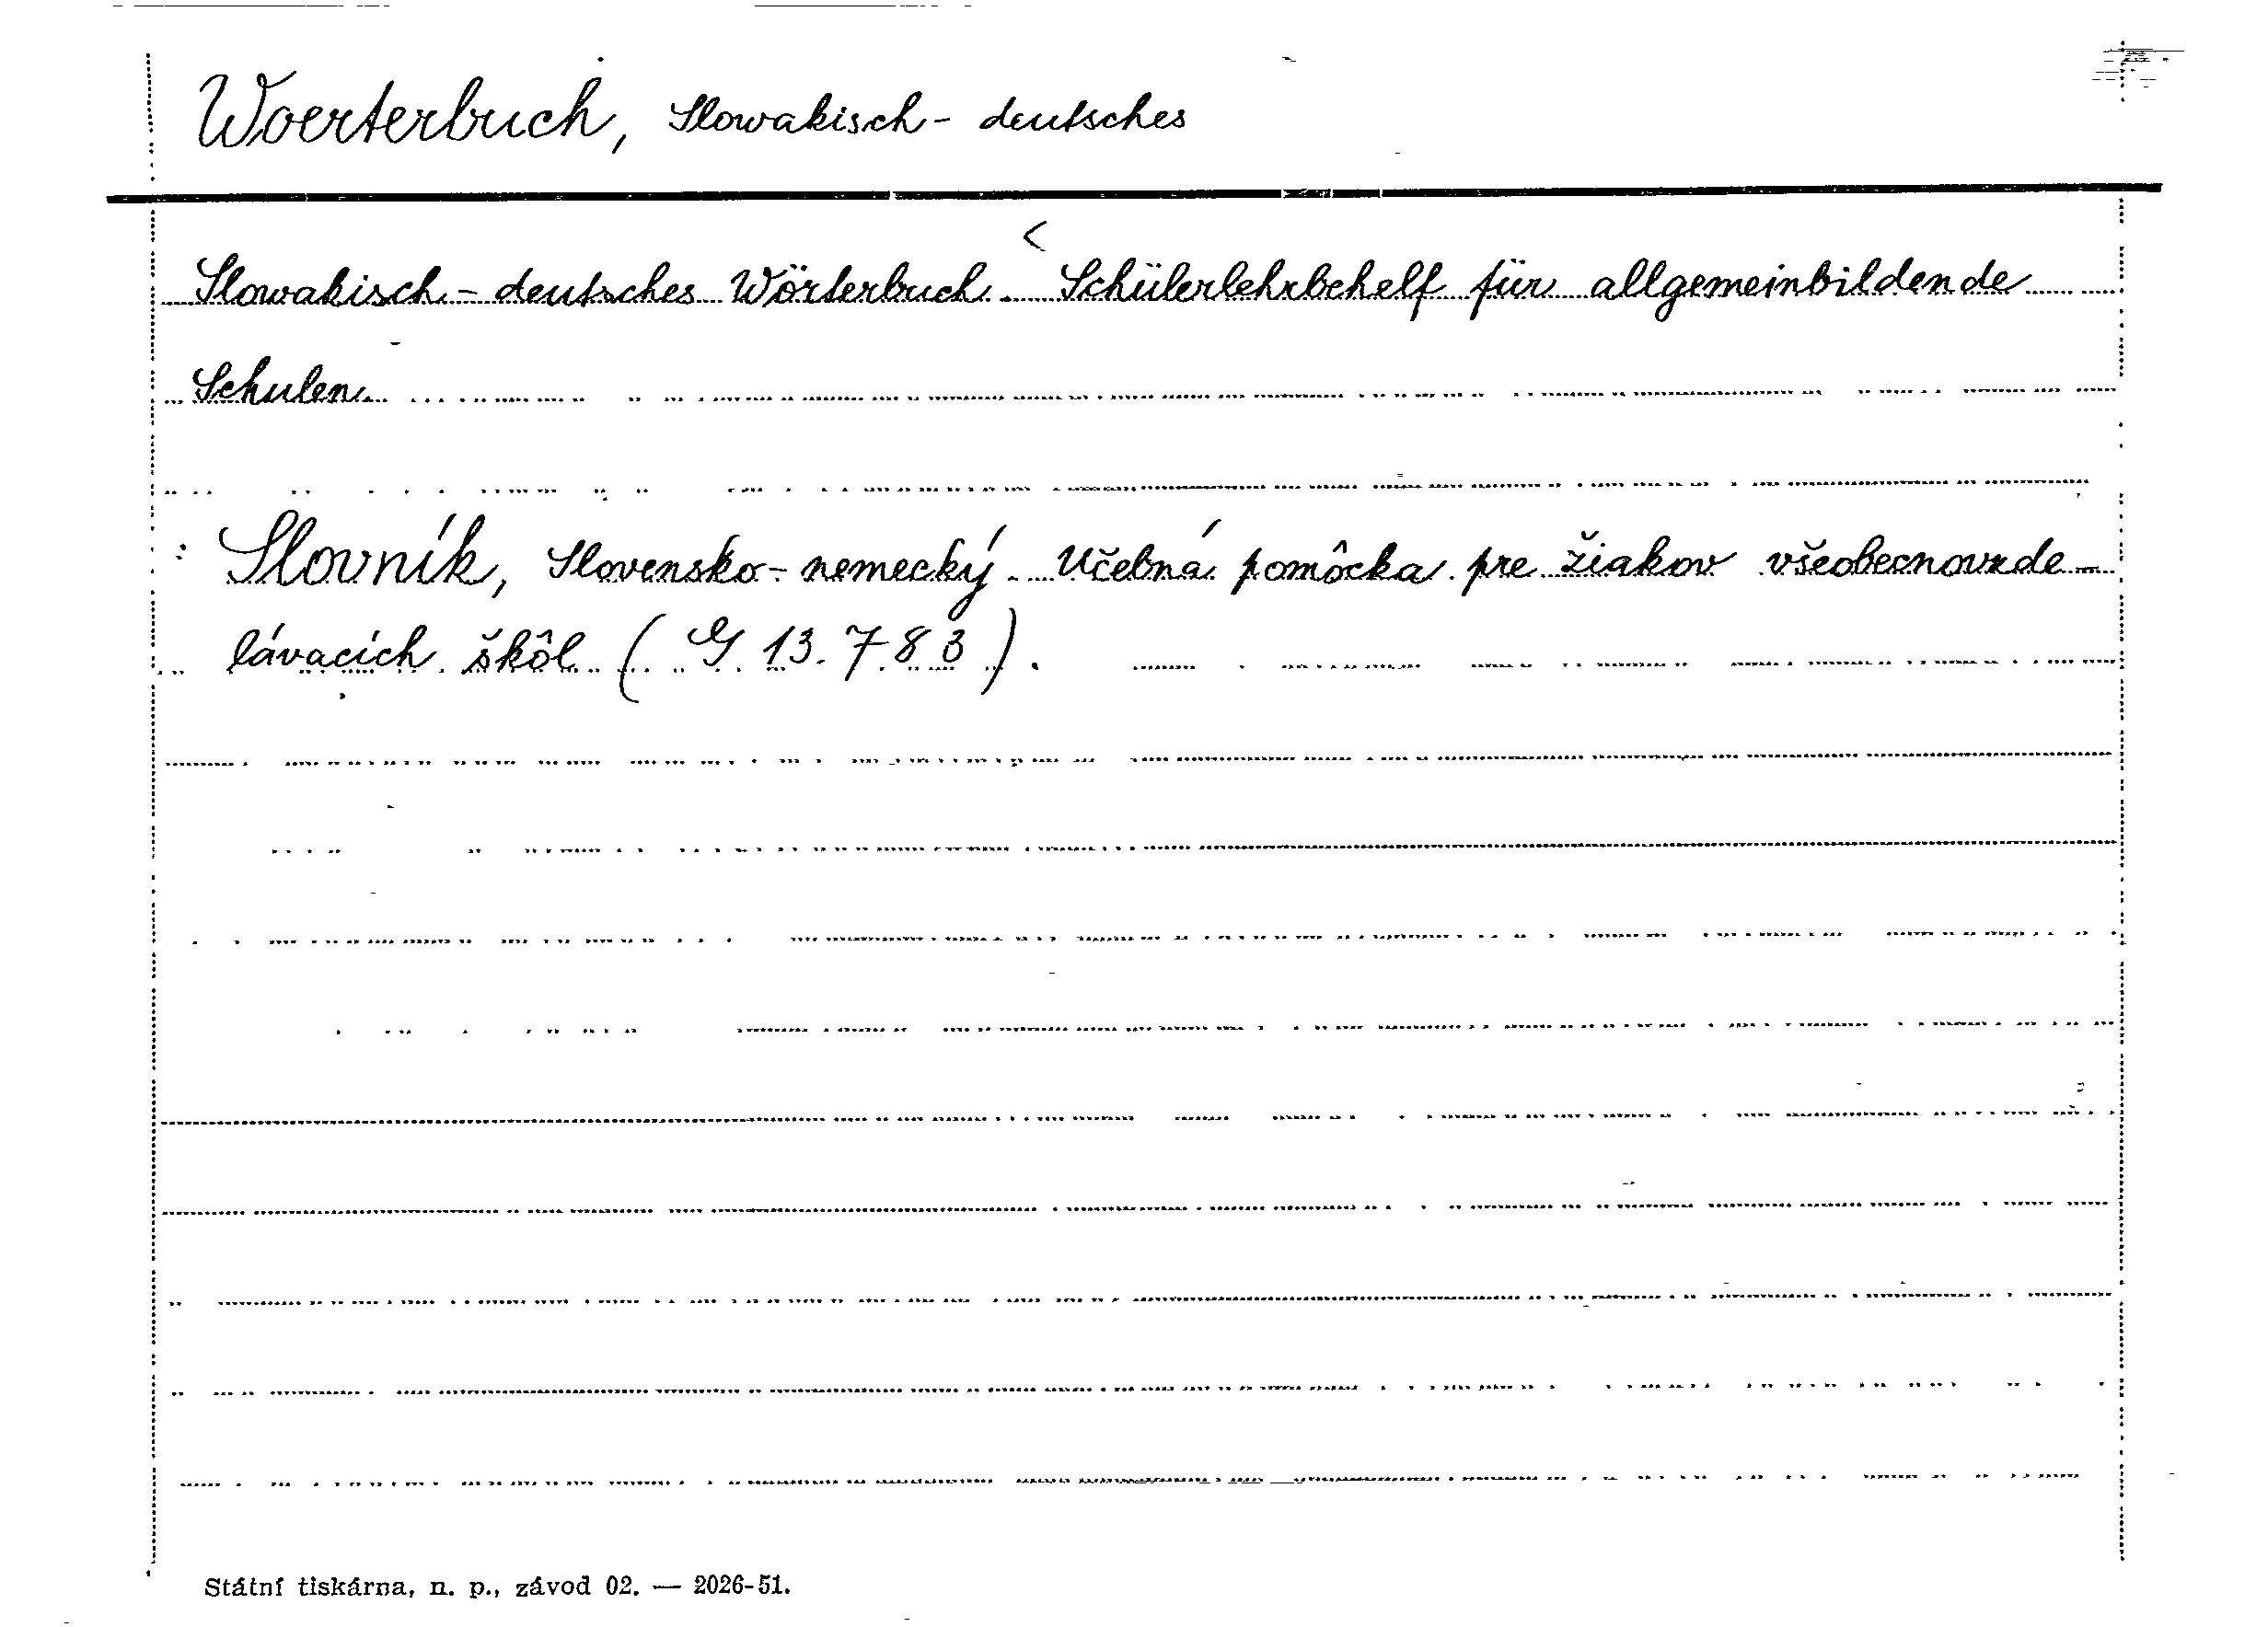 Woerterbuch, Slowakisch - deutsches
<
Slowakisch - deutsches Wörterbuch. Schülerlehrbehelf für allgemeinbildende
Schulen.
Slovník, Slovensko - nemecký. Učebná pomôcka pre žiakov všeobecnovzde-
lávacích škôl ( G 13.783 ).
Státní tiskárna, n. p., závod 02. — 2026-51.